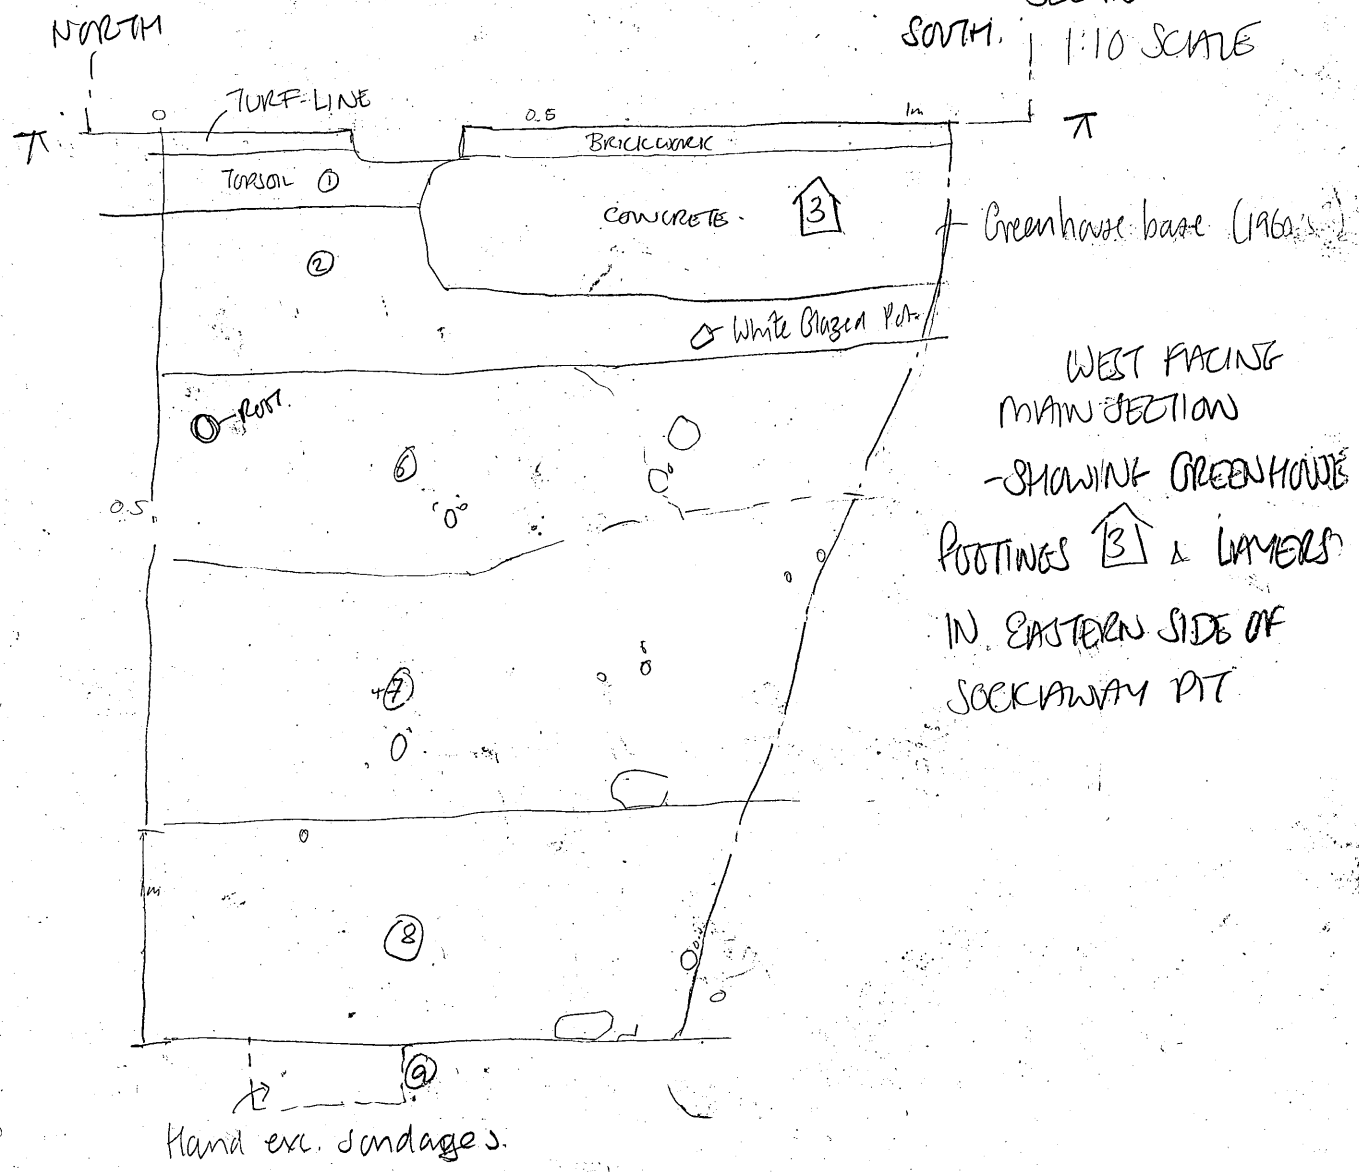 NORTH
SOUTH.
1:10 SCALE
TURF-LINE
0
0.5
1m
BRICKWORK
TOPSOIL 1
CONCRETE. 3
Greenhouse base (1960's)
2
White Glazed Pot.
WEST FACING
MAIN SECTION
-SHOWING GREENHOUSE
FOOTINGS 3 & LAYERS
IN EASTERN SIDE OF
SOCKAWAY PIT
ROOT.
6
0.5
+7
1m
8
9
Hand exc. sondages.